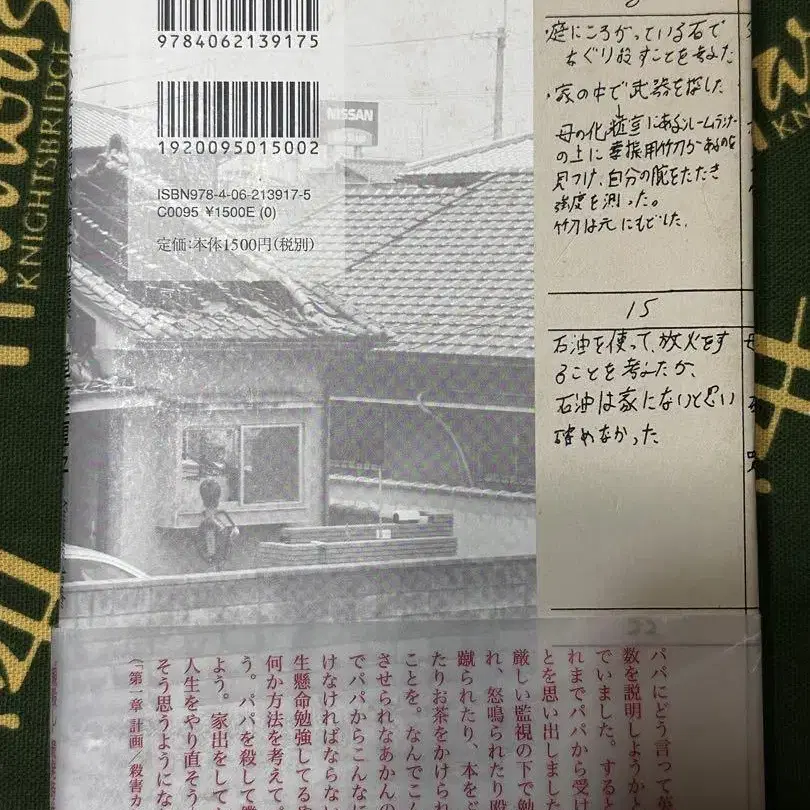 9784062139175
1920095015002
ISBN978-4-06-213917-5
C0095 ¥1500E (0)
定価:本体1500円(税別)
NISSAN
KNIGHTSBRIDGE
・庭にころがっている石で
なぐり殺すことを考えた
・家の中で武器を探した
母の化粧室にあるルームランナー
の上に素振用竹刀があるのを
見つけ、自分の腕をたたき
強度を測った。
竹刀は元にもどした。
15
石油を使って、放火をす
ることを考えたが、
石油は家にないと思い
確めなかった
22
パパにどう言って
数を説明しようかと
でいました。すると
れまでパパから受け
とを思い出しました
厳しい監視の下で勉
れ、怒鳴られたり殴
蹴られたり、本をぶ
たりお茶をかけられ
ことを。なんでこん
させられなあかんの
でパパからこんなに
けなければならない
生懸命勉強してる
何か方法を考えて、
う。パパを殺して
よう。家出をして
人生をやり直そう
そう思うようにな
(「第一章 計画/殺害カ